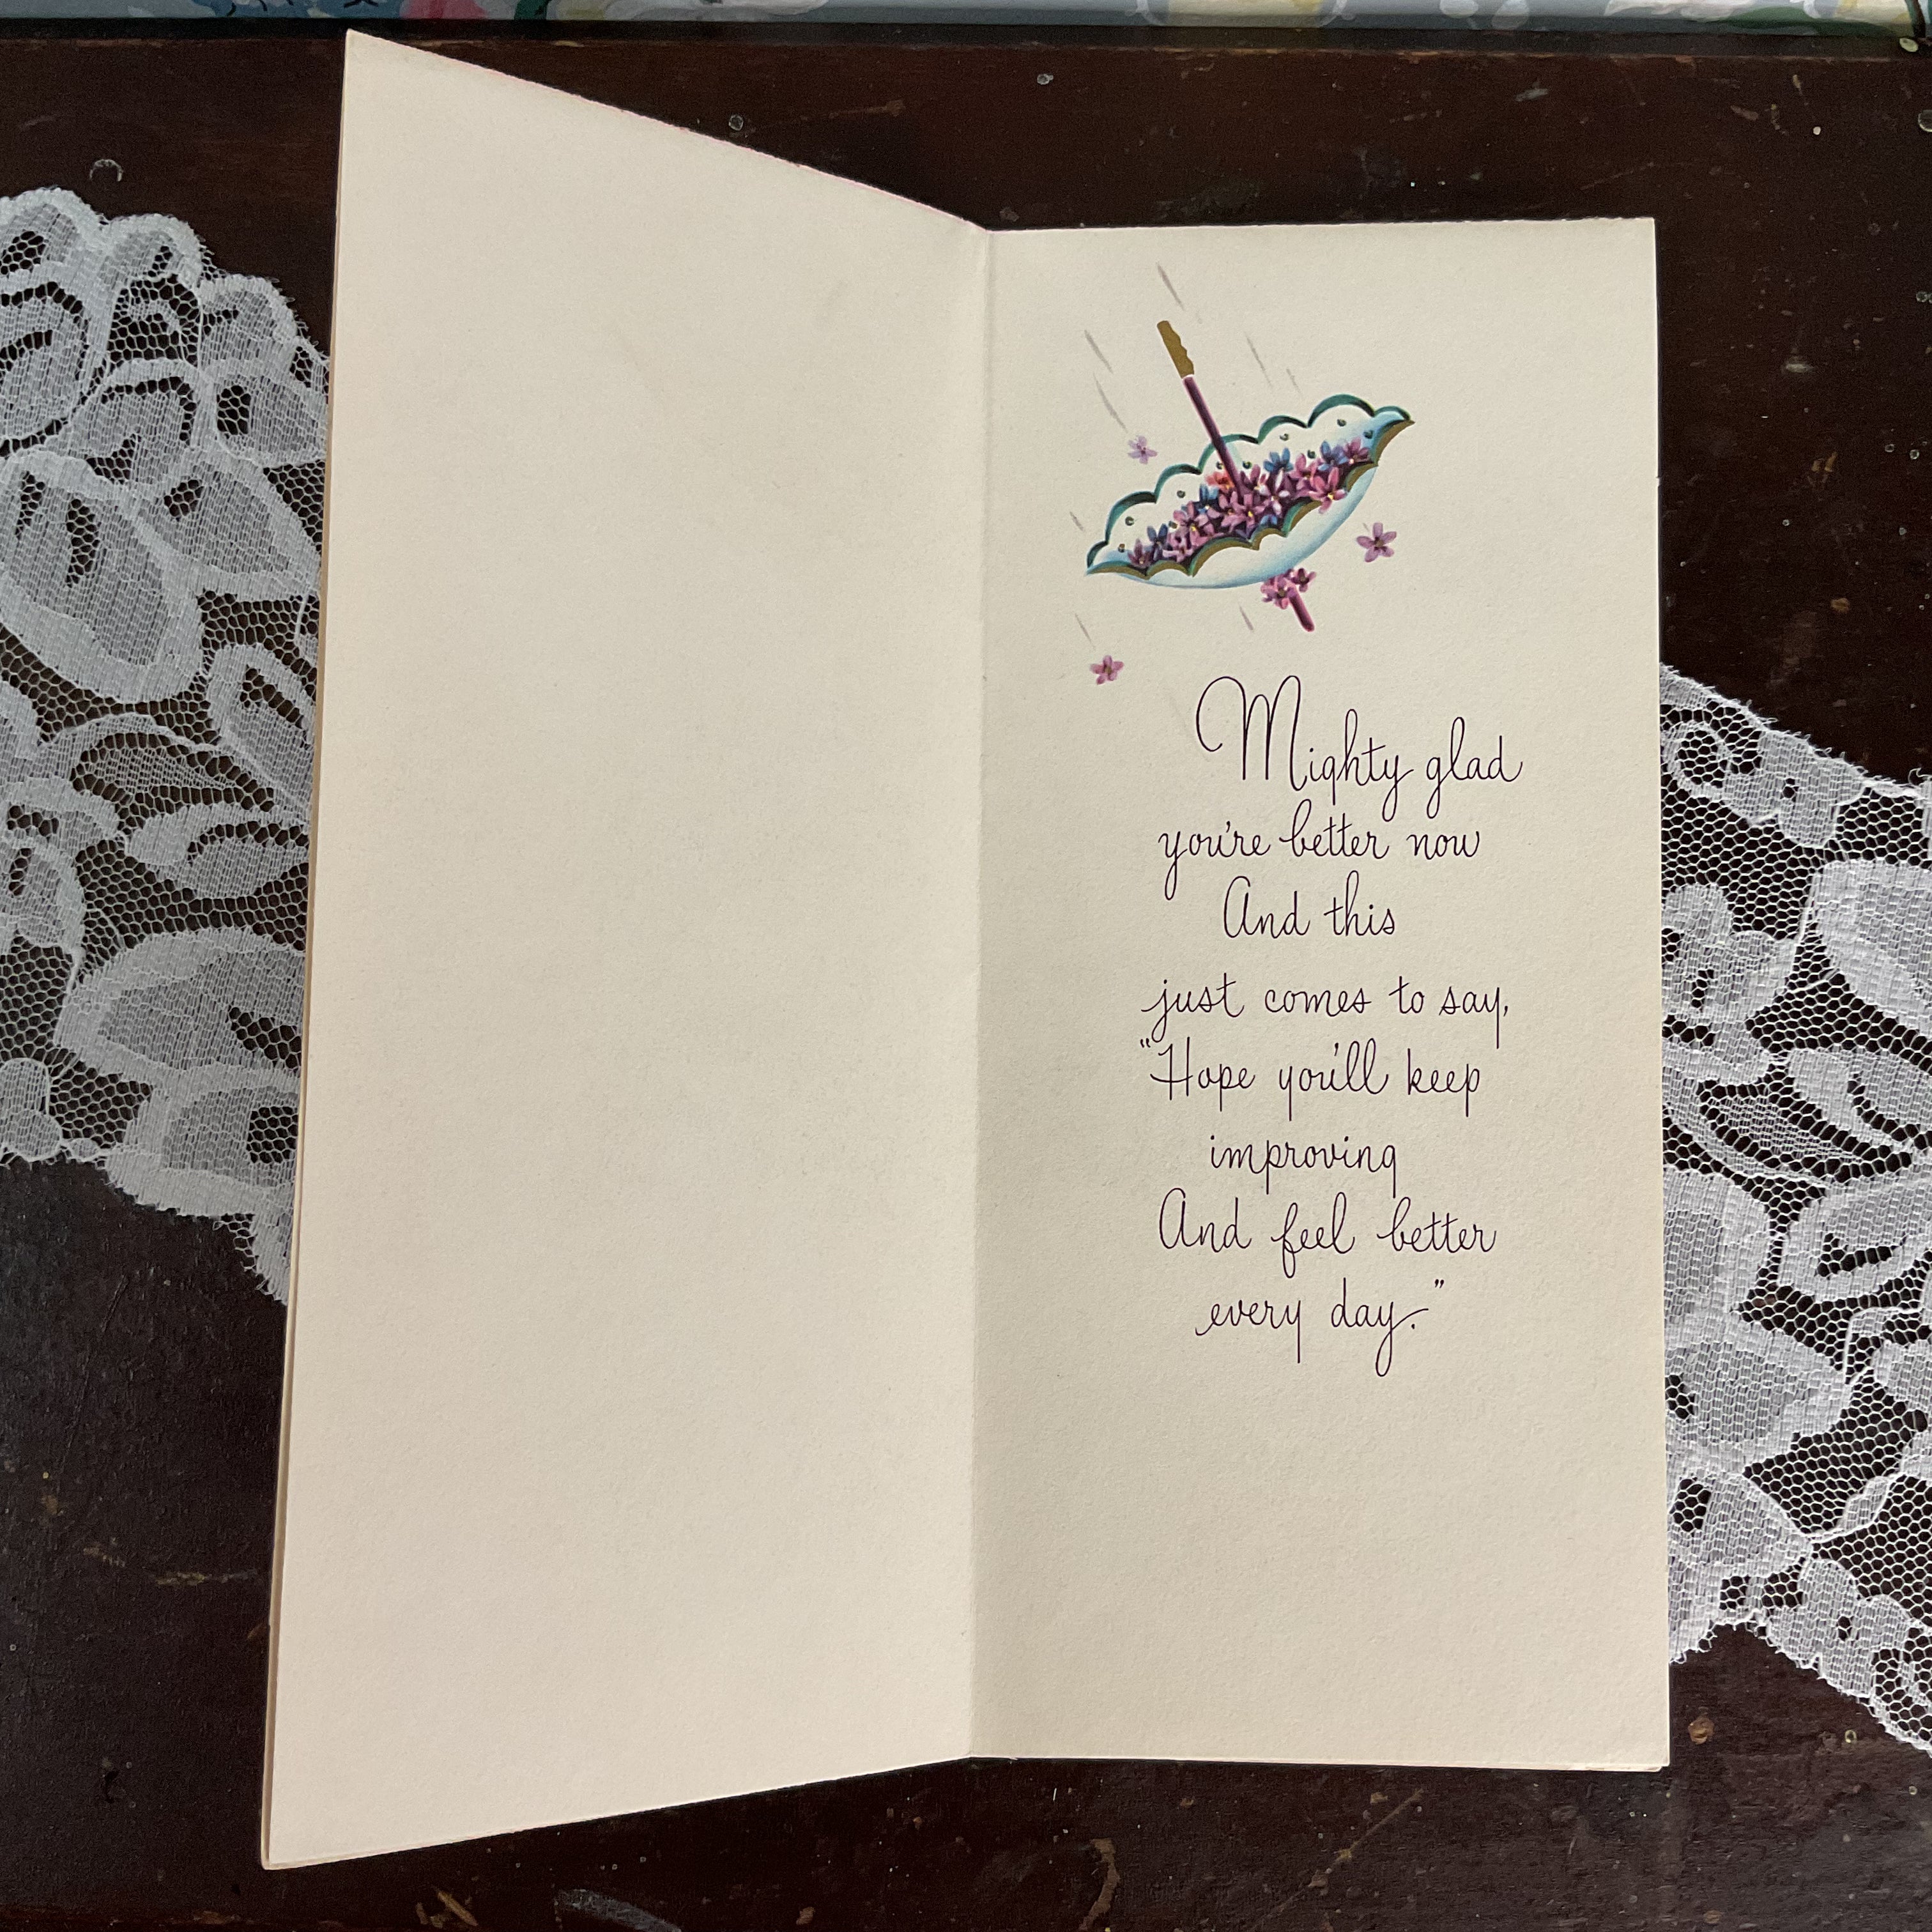 Mighty glad
you're better now
And this
just comes to say,
"Hope you'll keep
improving
And feel better
every day."